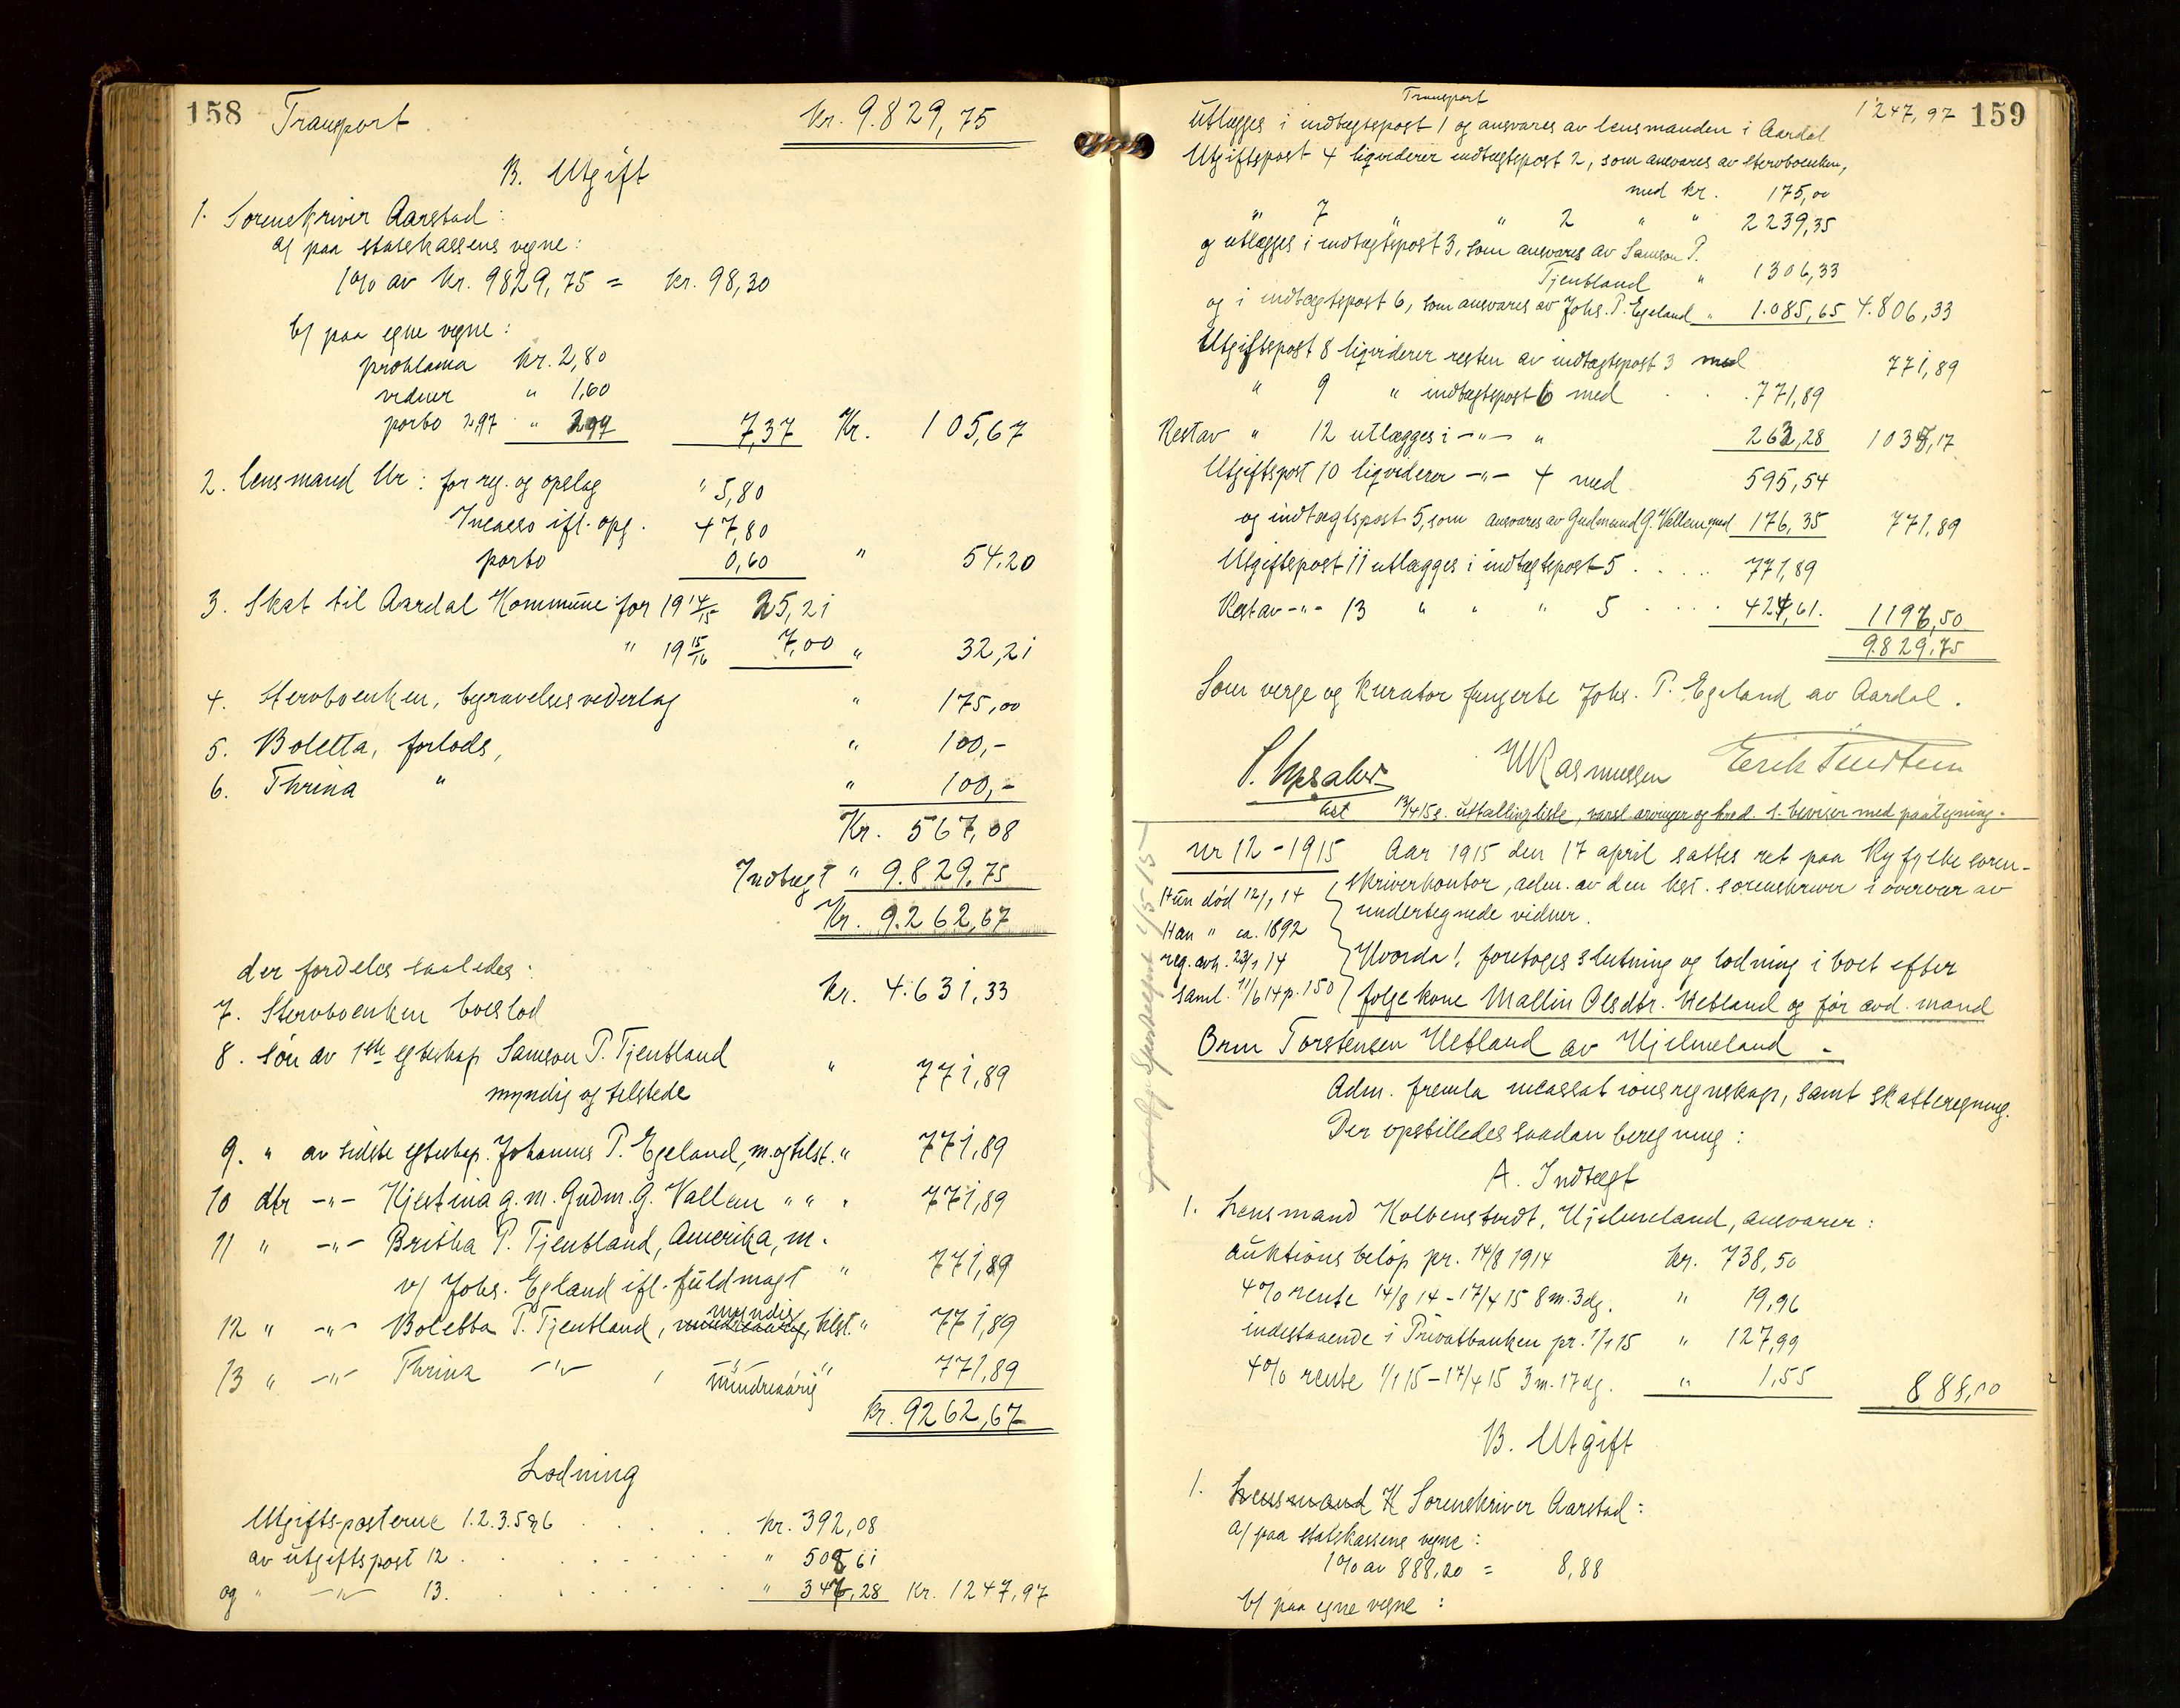 158 Transport kr. 9.829,75
B. Utgift
1. Sorenskriver Aarstad:
a/ paa statskassens vegne:
1% av kr. 9829,75 = kr. 98,30
b/ paa egne vegne:
proklama kr. 2,80
vidner " 1,60
porto 2,97 " 2,97 7,37 Kr. 105,67
2. Lensmand Ur: for reg. og opslag " 5,80
Incasso ifl. opg. 47,80
porto 0,60 " 54,20
3. Skat til Aardal Kommune for 19 14/15 25,21
" 19 15/16 7,00 " 32,21
4. Stervboenken, begravelsesvederlag " 175,00
5. Boletta, forlods, " 100,-
6. Thrina " " 100,-
Kr. 567,08
Indtægt " 9.829,75
Kr. 9.262,67
der fordeles saaledes:
7. Stervboenken boeslod kr. 4.631,33
8. søn av 1ste egteskap Samson P. Tjentland
myndig og tilstede " 771,89
9. " av sidste egteskap. Johannes P. Egeland, m. og tilst. " 771,89
10 dtr -"- Kjestina g. m. Gudm. G. Vallem " " " 771,89
11 " -"- Britha P. Tjentland, Amerika, m.
v/ Johs. Egeland ifl. fuldmagt " 771,89
myndig
12 " -"- Boletta P. Tjentland, mindreaarig, tilst. " 771,89
13 " -"- Thrina -"- , mindreaarig -"- " 771,89
kr. 9262,67
Lodning
Utgiftsposterne 1.2.3.5 og 6 . . . . kr. 392,08
av utgiftspost 12 . . . . " 508,61
og " -"- 13. . . . . " 347,28 kr. 1247,97
Transport 1247,97 159
utlægges i indtægtspost 1 og ansvares av lensmanden i Aardal
Utgiftspost 4 liqviderer indtægtspost 2, som ansvares av stervboenken,
med kr. 175,00
" 7 " " 2 " " 2239,35
og utlægges i indtægtspost 3, som ansvares av Samson P.
Tjentland " 1306,33
og i indtægtspost 6, som ansvares av Johs. P. Egeland " 1.085,65 4.806,33
Utgiftspost 8 liqviderer resten av indtægtspost 3 med 771,89
" 9 " indtægtspost 6 med . . . 771,89
Rest av " 12 utlægges i -"- " 263,28 1035,17
Utgiftspost 10 liqviderer -"- 4 med 595,54
og indtægtspost 5, som ansvares av Gudmund G. Vallem, med 176,35 771,89
Utgiftspost 11 utlægges i indtægtspost 5 . . . . 771,89
Rest av -"- 13 " " " 5 . . . . 424,61. 1196,50
9829,75
Som verge og kurator fungerte Johs. P. Egeland av Aardal.
MRasmussen
kst 13/4 15 s. utfallingliste, varsl. arvinger og hved. s. beviser med paategning.
nr 12 - 1915 Aar 1915 den 17 april sattes ret paa Ryfylke soren-
skriverkontor, adm. av den kst. sorenskriver i overvær av
undertegnede vidner.
Hun død 12/1 14
Han " ca. 1892
reg. avh. 23/1 14
saml. 11/6 14 p. 150
Hvorda!, foretoges slutning og lodning i boet efter
folgekone Mallin Olsdtr. Hetland og før avd. mand
Orm Torstensen Hetland av Hjelmeland -
Adm. fremla incassationsregnskap, samt skatteregning.
Der opstilledes saadan beregning:
A. Indtægt
1. Lensmand Kolbenstvedt, Hjelmeland, ansvarer:
auktionsbeløp pr. 14/8 1914 kr. 738,50
4% rente 14/8 14 - 17/4 15 8 m. 3 dg. " 19,96
indestaaende i Privatbanken pr. 1/1 15 " 127,99
4% rente 1/1 15 - 17/4 15 3 m. 17 dg. " 1,55 888,00
B. Utgift
1. Lensmand K Sorenskriver Aarstad:
a/ paa statskassens vegne:
1% av 888,00 = 8,88
b/ paa egne vegne: